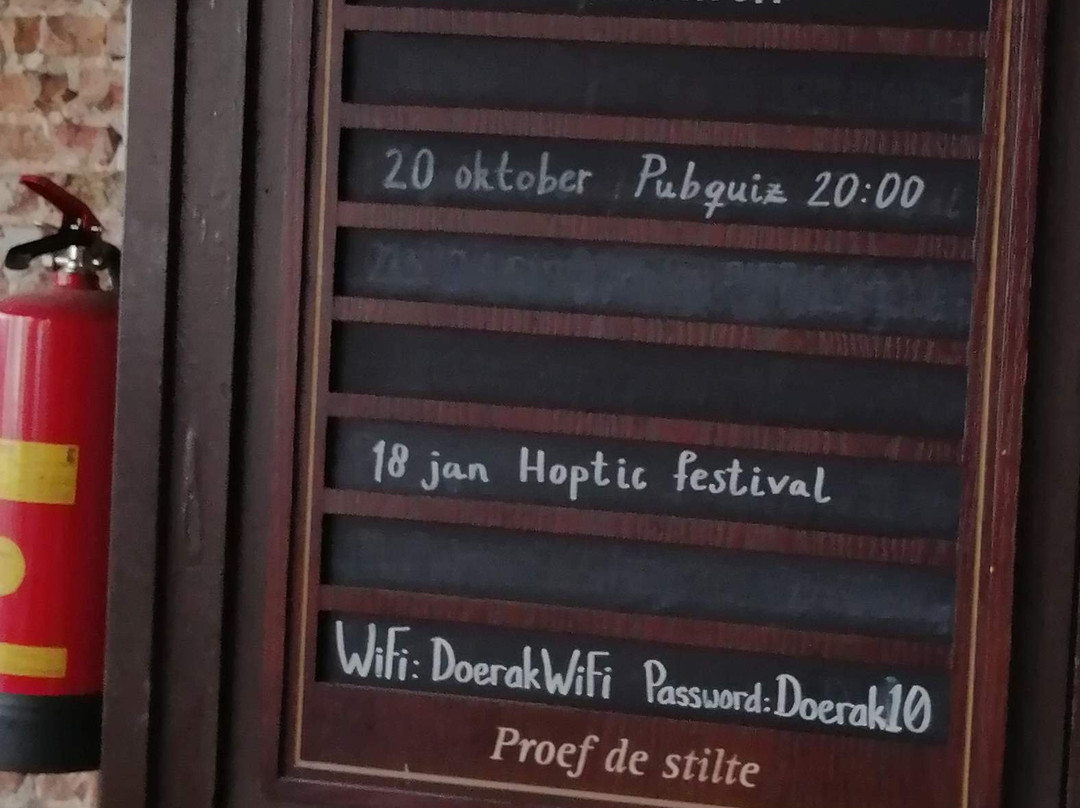 20 oktober Pubquiz 20:00
18 jan Hoptic festival
WiFi: DoerakWiFi Password: Doerak10
Proef de stilte